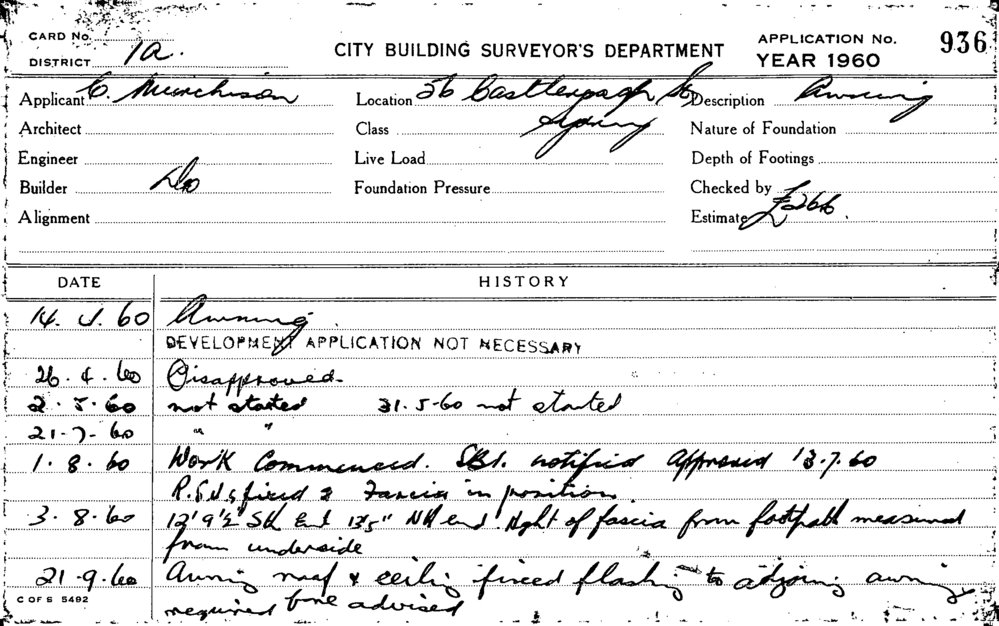 CARD No.
DISTRICT 1a.
CITY BUILDING SURVEYOR'S DEPARTMENT
APPLICATION No. 936
YEAR 1960
Applicant C. Murchison
Location 36 Castlereagh St
Description Awning
Architect
Class Sydney
Nature of Foundation
Engineer
Live Load
Depth of Footings
Builder Do
Foundation Pressure
Checked by
Alignment
Estimate £266.
DATE HISTORY
14. 4. 60 Awning.
DEVELOPMENT APPLICATION NOT NECESSARY
26. 4. 60 Disapproved.
2. 5. 60 not started 31. 5-60 not started
21-7-60 " "
1. 8. 60 Work Commenced. notified Approved 13.7.60
fixed & Fascia in position.
3. 8. 60 12' 9½" Sth End 13'5" Nth end Hght of fascia from footpath measured
from underside
21-9.60 Awning roof & ceiling fixed flashing to adjoining awning
required advised
C OF S 5492